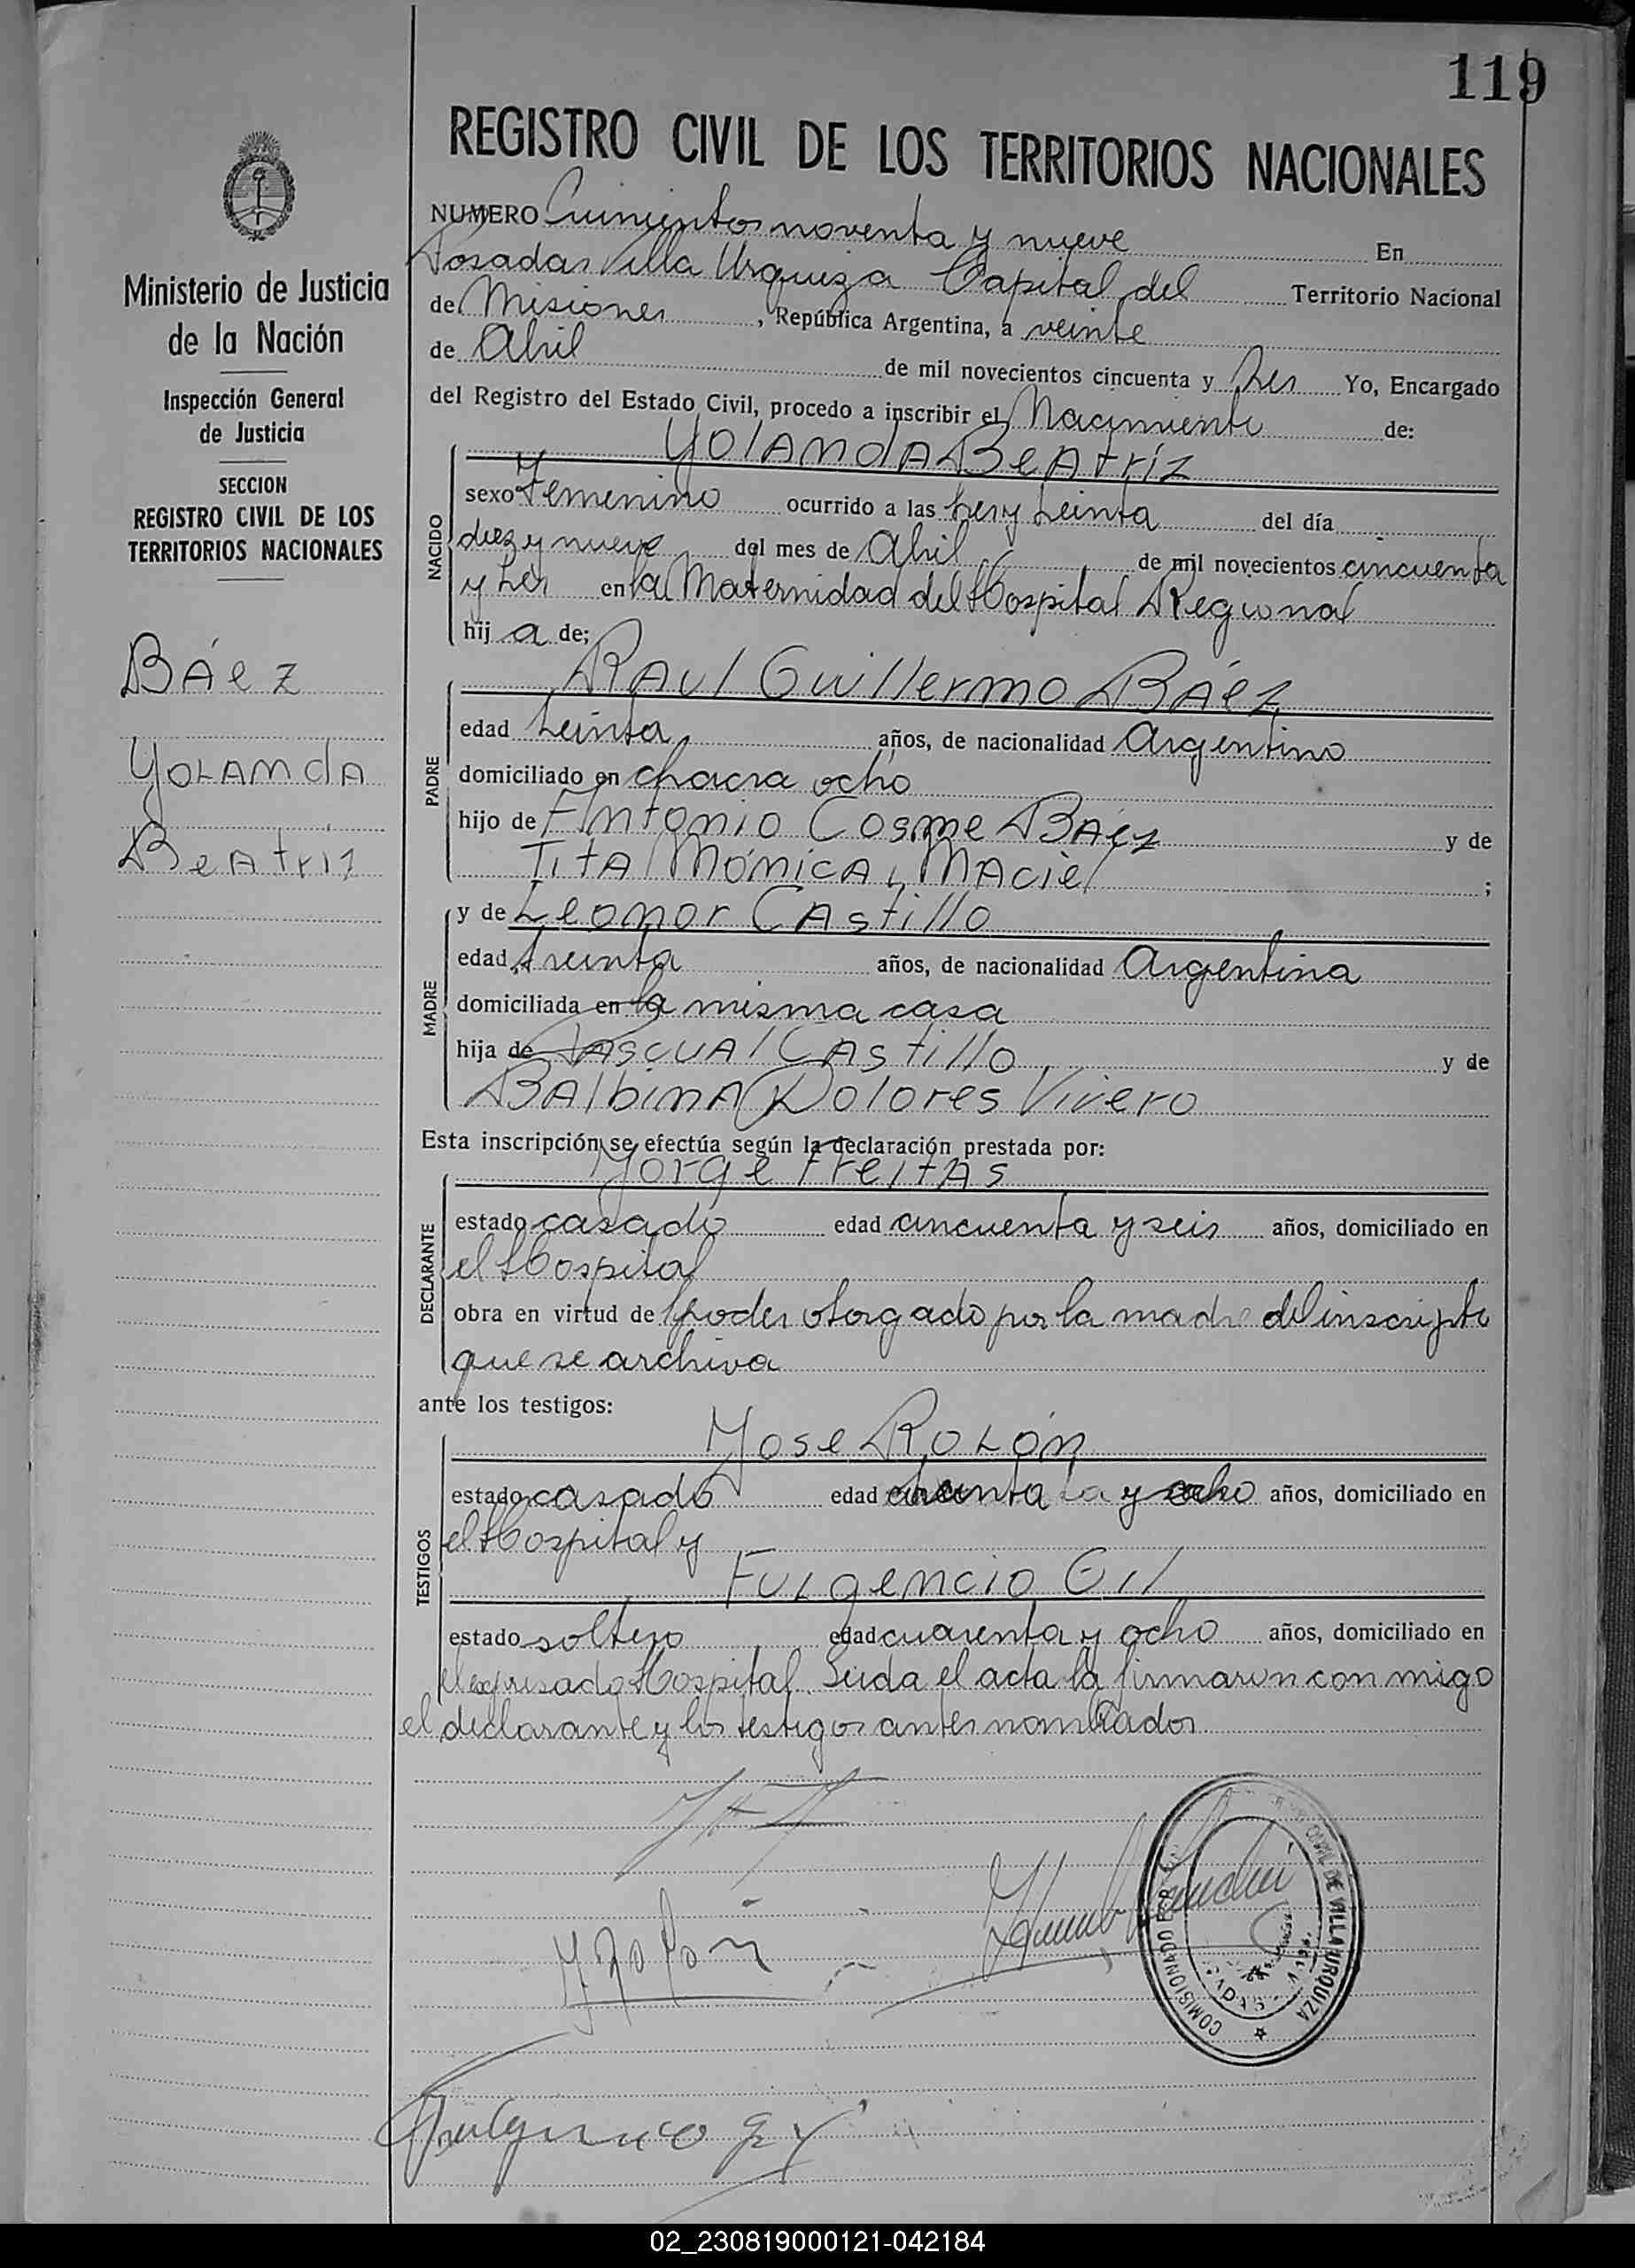 119
REGISTRO CIVIL DE LOS TERRITORIOS NACIONALES
Ministerio de Justicia
de la Nación
Inspección General
de Justicia
SECCION
REGISTRO CIVIL DE LOS
TERRITORIOS NACIONALES
Báez
Yolanda
Beatríz
NUMERO Quinientos noventa y nueve En
Posadas Villa Urquiza Capital del Territorio Nacional
de Misiones, República Argentina, a veinte
de Abril de mil novecientos cincuenta y tres Yo, Encargado
del Registro del Estado Civil, procedo a inscribir el Nacimiento de:
Yolanda Beatríz
NACIDO
sexo Femenino ocurrido a las tres y treinta del día
diez y nueve del mes de Abril de mil novecientos cincuenta
y tres en la Maternidad del Hospital Regional
hija de;
Raul Guillermo Báez
PADRE
edad treinta años, de nacionalidad Argentino
domiciliado en chacra ocho
hijo de Antonio Cosme Báez y de
Tita Mónica Maciel ;
MADRE
y de Leonor Castillo
edad treinta años, de nacionalidad Argentina
domiciliada en la misma casa
hija de Pascual Castillo y de
Balbina Dolores Vivero
Esta inscripción se efectúa según la declaración prestada por:
Jorge Freitas
DECLARANTE
estado casado edad cincuenta y seis años, domiciliado en
el Hospital
obra en virtud de poder otorgado por la madre del inscripto
que se archiva
ante los testigos:
TESTIGOS
Jose Rolón
estado casado edad y ocho años, domiciliado en
el Hospital y
Fulgencio Gil
estado soltero edad cuarenta y ocho años, domiciliado en
el expresado Hospital. Leida el acta la firmaron conmigo
el declarante y los testigos antes nombrados
J. Rolón
COMISIONADO CIVIL DE VILLA URQUIZA
Fulgencio Gil
02_230819000121-042184